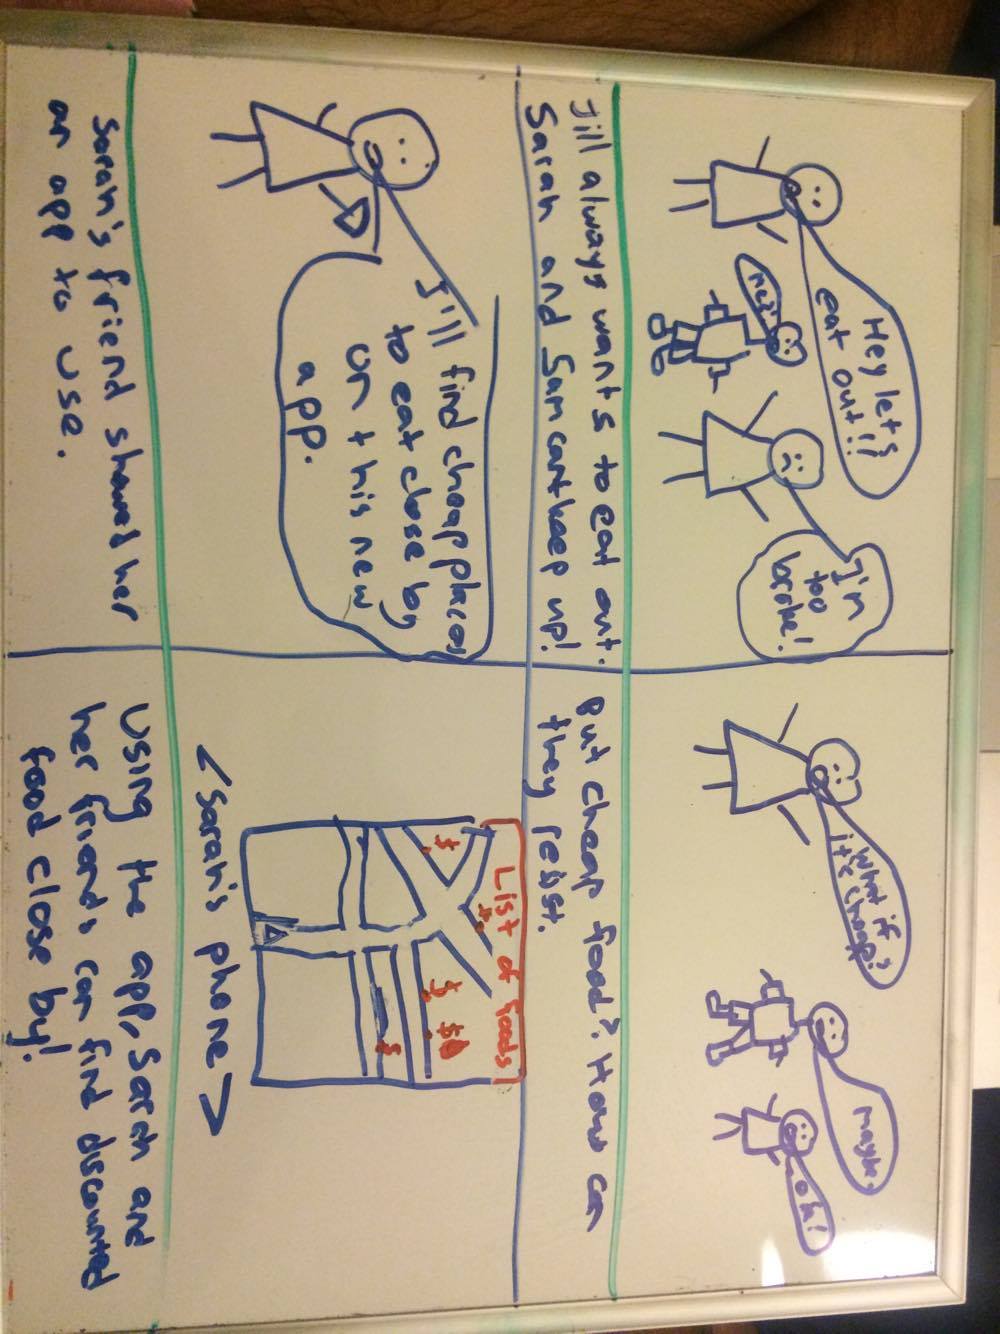 Hey lets
eat out!!
me?
I'm
too
broke!
Jill always wants to eat out.
Sarah and Sam cant keep up!
What if
it's cheap?
maybe.
oh!
But cheap food? How can
they resist.
I'll find cheap places
to eat close by
on this new
app.
Sarah's friend showed her
an app to use.
List of foods
$
$
$ $
$
<Sarah's phone>
Using the app, Sarah and
her friends can find discounted
food close by!